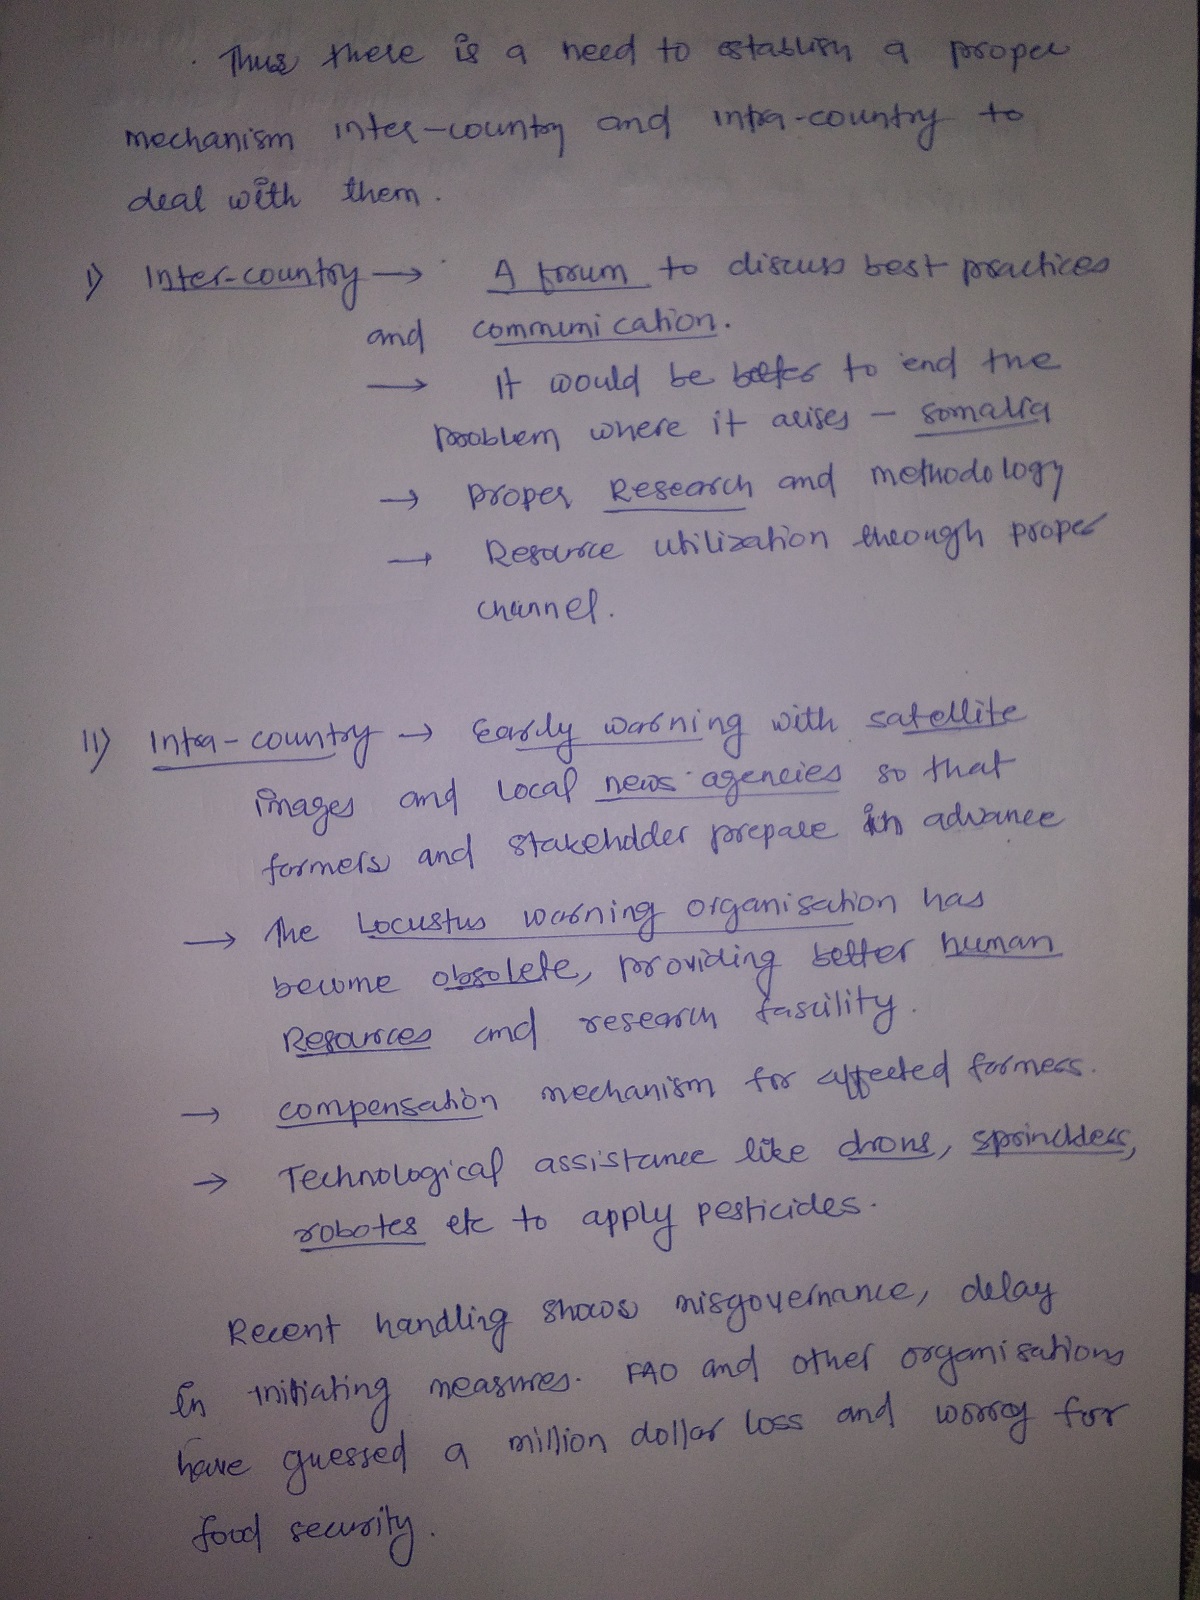 Thus there is a need to establish a proper
mechanism inter-country and intra-country to
deal with them.
I) Inter-country → A forum to discuss best practices
and communication.
→ It would be better to end the
problem where it arises - somalia
→ proper Research and methodology
→ Resource utilization through proper
channel.
II) Intra-country → Early warning with satellite
images and local news agencies so that
farmers and stakeholder prepare in advance
→ The Locustus warning organisation has
become obsolete, providing better human
Resources and research fascility.
→ compensation mechanism for affected farmers.
→ Technological assistance like drons, sprincklers,
robotes etc to apply pesticides.
Recent handling shows misgovernance, delay
in initiating measures. FAO and other organisations
have guessed a million dollar loss and worry for
food security.